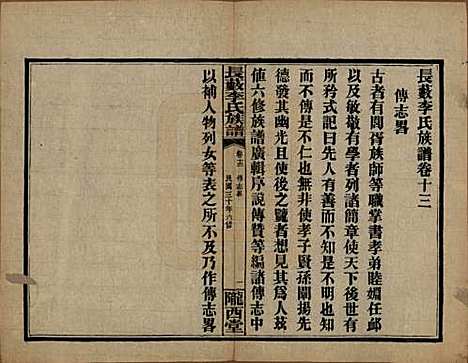 長藪李氏族譜卷十三
傳志畧
古者有閭胥族師等職掌書孝弟睦婣任䘏
以及敏敬有學者列諸簡章使天下後世有
所矜式記曰先人有善而不知是不明也知
而不傳是不仁也無非使孝子賢孫闡揚先
德發其幽光且使後之覽者想見其為人茲
値六修族譜廣輯序說傳贊等編諸傳志中
以補人物列女等表之所不及乃作傳志畧
長藪李氏族譜
卷十三 傳志畧
民國三十年六修
一
隴西堂